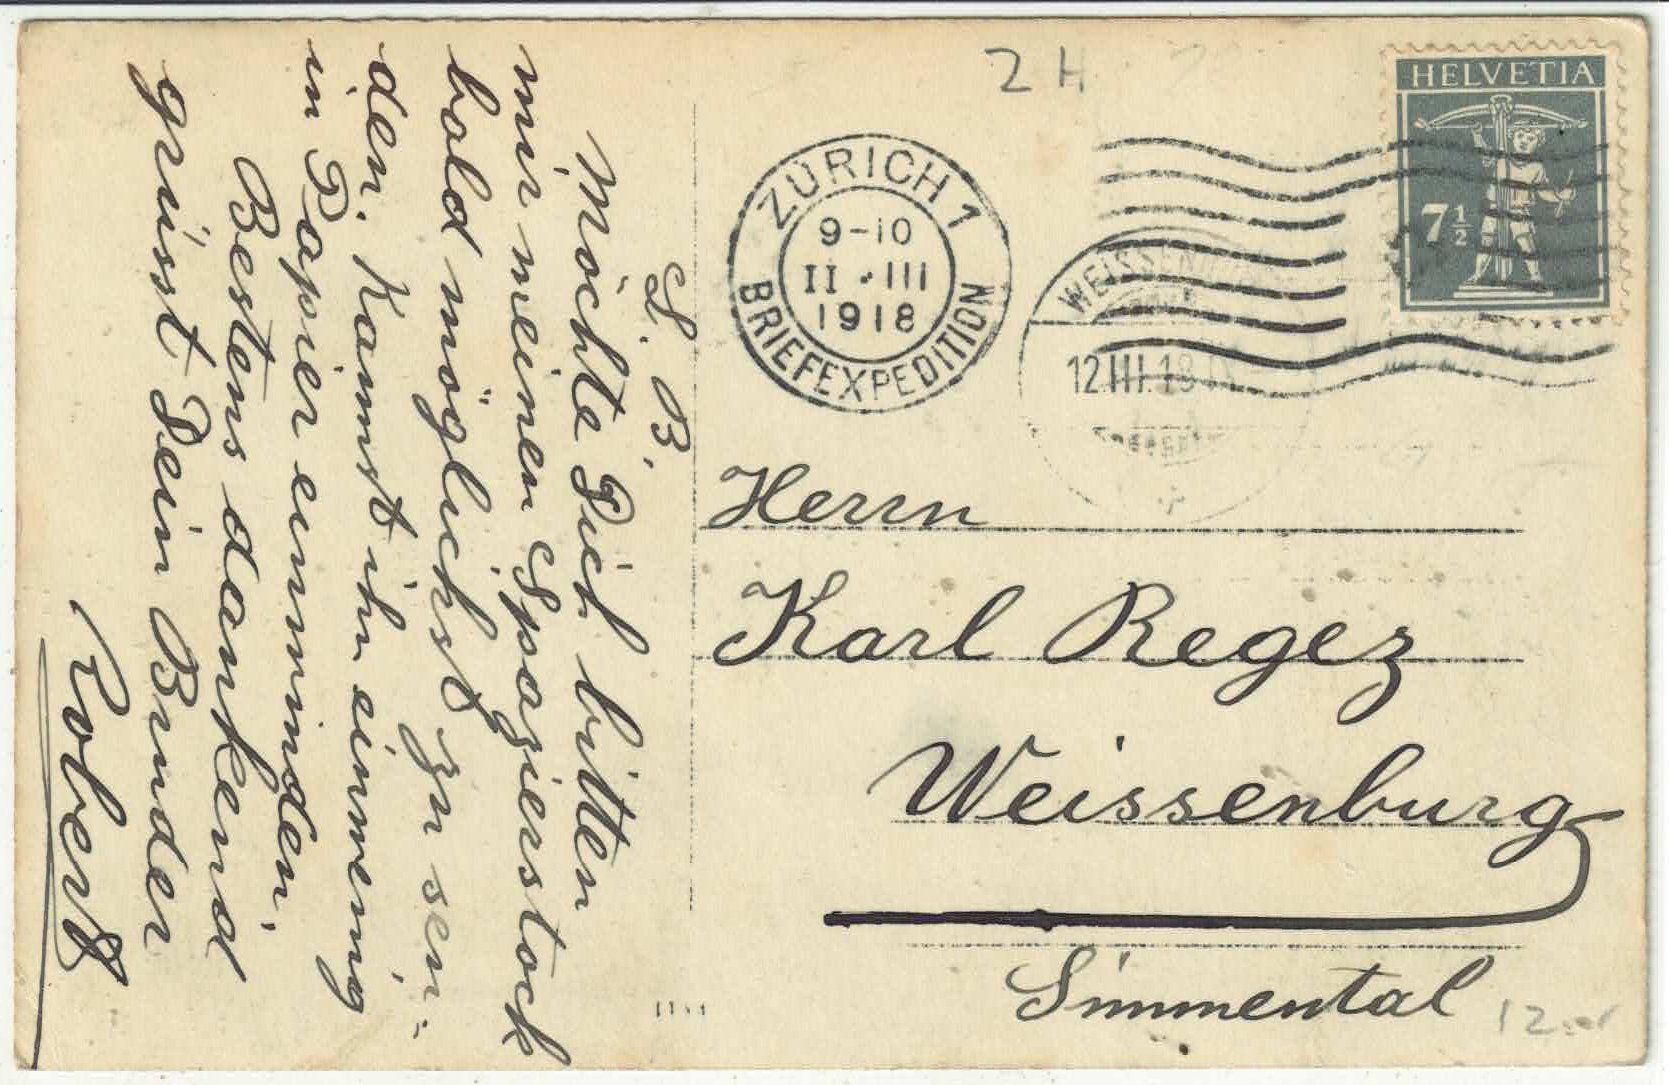 L. B.
Möchte Dich bitten
mir meinen Spazierstock
bald möglichst zu sen-
den. Kannst ihn einwenig
in Papier einwinden.
Bestens dankend
grüsst Dein Bruder
Robert
2 H
HELVETIA
7½
ZÜRICH 1
9-10
11 · III
1918
BRIEFEXPEDITION
WEISSENBURG
12.III.18
Herrn
Karl Regez
Weissenburg
Simmental
12.-